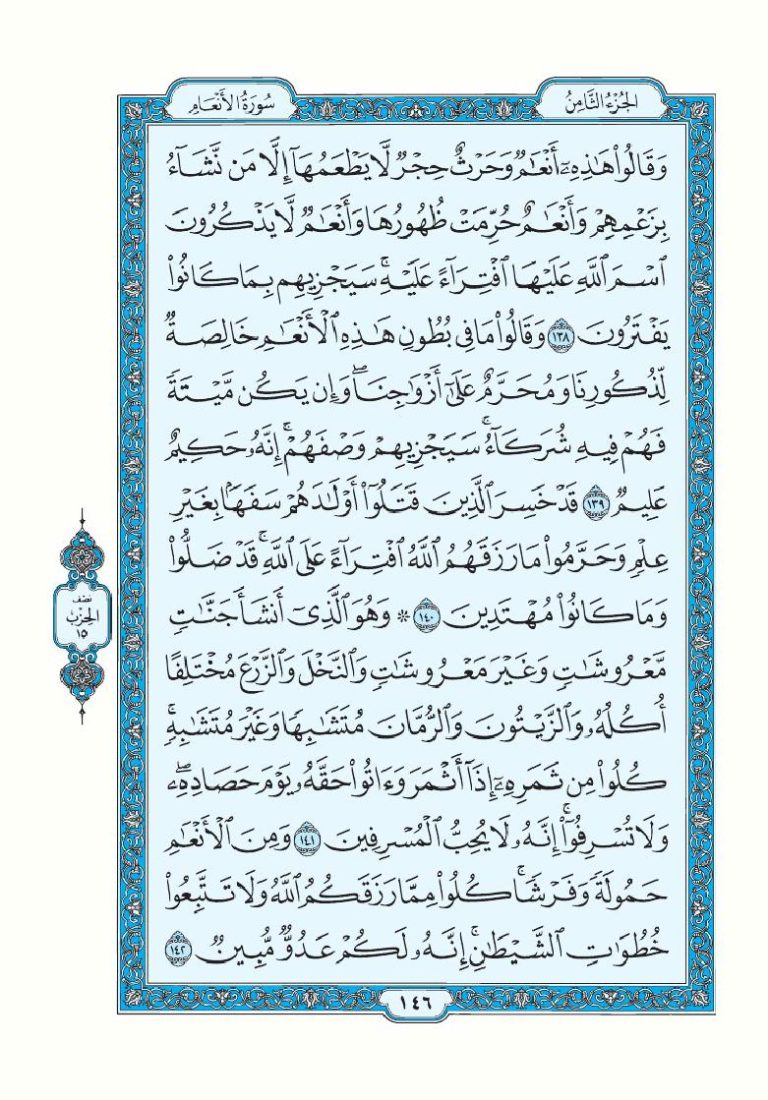 الجُزْءُ الثَّامِنُ
سُورَةُ الأَنْعَامِ
وَقَالُوا۟ هَـٰذِهِۦٓ أَنْعَـٰمٌ وَحَرْثٌ حِجْرٌ لَّا يَطْعَمُهَآ إِلَّا مَن نَّشَآءُ
بِزَعْمِهِمْ وَأَنْعَـٰمٌ حُرِّمَتْ ظُهُورُهَا وَأَنْعَـٰمٌ لَّا يَذْكُرُونَ
ٱسْمَ ٱللَّهِ عَلَيْهَا ٱفْتِرَآءً عَلَيْهِ ۚ سَيَجْزِيهِم بِمَا كَانُوا۟
يَفْتَرُونَ ١٣٨ وَقَالُوا۟ مَا فِى بُطُونِ هَـٰذِهِ ٱلْأَنْعَـٰمِ خَالِصَةٌ
لِّذُكُورِنَا وَمُحَرَّمٌ عَلَىٰٓ أَزْوَٰجِنَا ۖ وَإِن يَكُن مَّيْتَةً
فَهُمْ فِيهِ شُرَكَآءُ ۚ سَيَجْزِيهِمْ وَصْفَهُمْ ۚ إِنَّهُۥ حَكِيمٌ
عَلِيمٌ ١٣٩ قَدْ خَسِرَ ٱلَّذِينَ قَتَلُوٓا۟ أَوْلَـٰدَهُمْ سَفَهًۢا بِغَيْرِ
عِلْمٍ وَحَرَّمُوا۟ مَا رَزَقَهُمُ ٱللَّهُ ٱفْتِرَآءً عَلَى ٱللَّهِ ۚ قَدْ ضَلُّوا۟
وَمَا كَانُوا۟ مُهْتَدِينَ ١٤٠ * وَهُوَ ٱلَّذِىٓ أَنشَأَ جَنَّـٰتٍ
مَّعْرُوشَـٰتٍ وَغَيْرَ مَعْرُوشَـٰتٍ وَٱلنَّخْلَ وَٱلزَّرْعَ مُخْتَلِفًا
أُكُلُهُۥ وَٱلزَّيْتُونَ وَٱلرُّمَّانَ مُتَشَـٰبِهًا وَغَيْرَ مُتَشَـٰبِهٍ ۚ
كُلُوا۟ مِن ثَمَرِهِۦٓ إِذَآ أَثْمَرَ وَءَاتُوا۟ حَقَّهُۥ يَوْمَ حَصَادِهِۦ ۖ
وَلَا تُسْرِفُوٓا۟ ۚ إِنَّهُۥ لَا يُحِبُّ ٱلْمُسْرِفِينَ ١٤١ وَمِنَ ٱلْأَنْعَـٰمِ
حَمُولَةً وَفَرْشًا ۚ كُلُوا۟ مِمَّا رَزَقَكُمُ ٱللَّهُ وَلَا تَتَّبِعُوا۟
خُطُوَٰتِ ٱلشَّيْطَـٰنِ ۚ إِنَّهُۥ لَكُمْ عَدُوٌّ مُّبِينٌ ١٤٢
نصف
الحِزْبُ
١٥
١٤٦